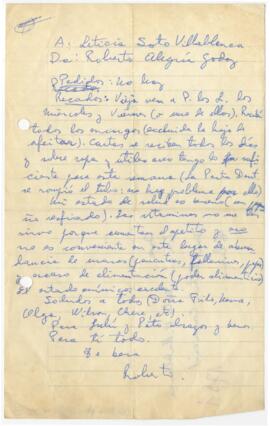 A: Leticia Soto Villablanca
De: Roberto Alegria Godoy
Pedidos: no hay
Recados: Vieja ven a P. los L. los
miércoles y Viernes (o uno de ellos). Recibí
todos los encargos (excluida la hoja de
afeitar). Cartas se reciben todos los dias
y sobre ropa y utiles aseo tengo lo sufi
ciente para esta semana (La Pasta Dent.
se rompió el tubo: no hay problema por ello)
Mi estado de salud es bueno (un
resfriado). Las vitaminas no me
sirven porque aumentan el apetito y eso
no es conveniente en este lugar de abun
dancia de manos (parientes,
y escaso de alimentación (poder alimenticio)
El estado anímico es excelente
Saludos a todos (Doña Tila, Nena,
Olga, Wilson, Chere, etc).
Para Lulú y Pato abrazos y besos.
Para ti todo.
Te besa
Roberto.